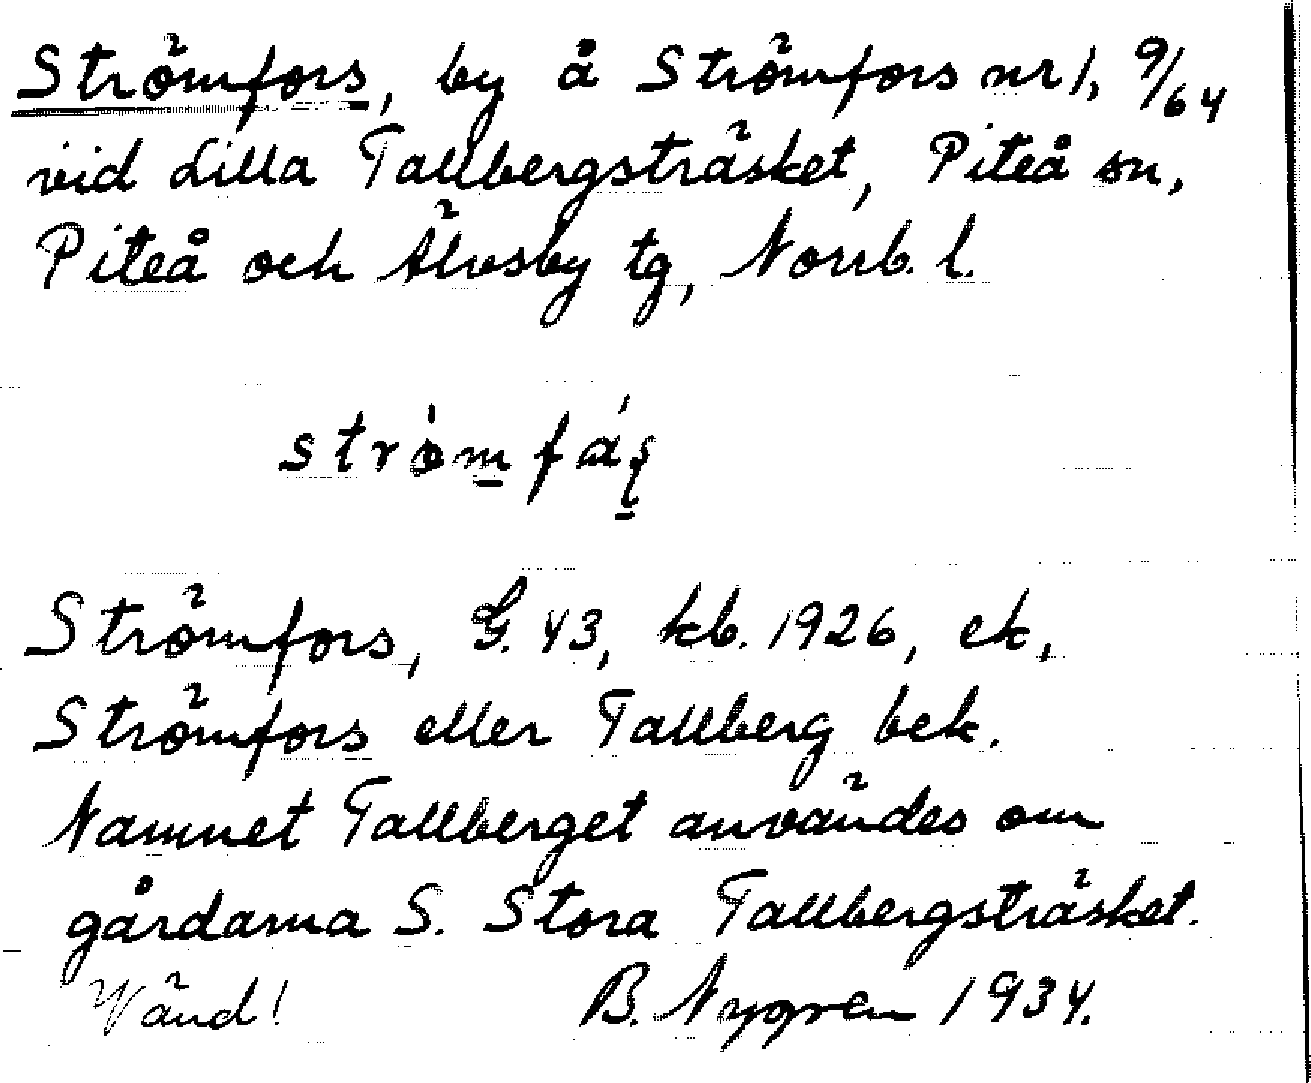 Strömfors, by å Strömfors nr 1, 9/64
vid Lilla Tallbergsträsket, Piteå sn,
Piteå och Älvsby tg, Norrb. l.
Strömfors, G. 43, kb. 1926, ek,
Strömfors eller Tallberg bek.
Namnet Tallberget användes om
gårdarna S. Stora Tallbergsträsket.
Vänd! B. Nygren 1934.